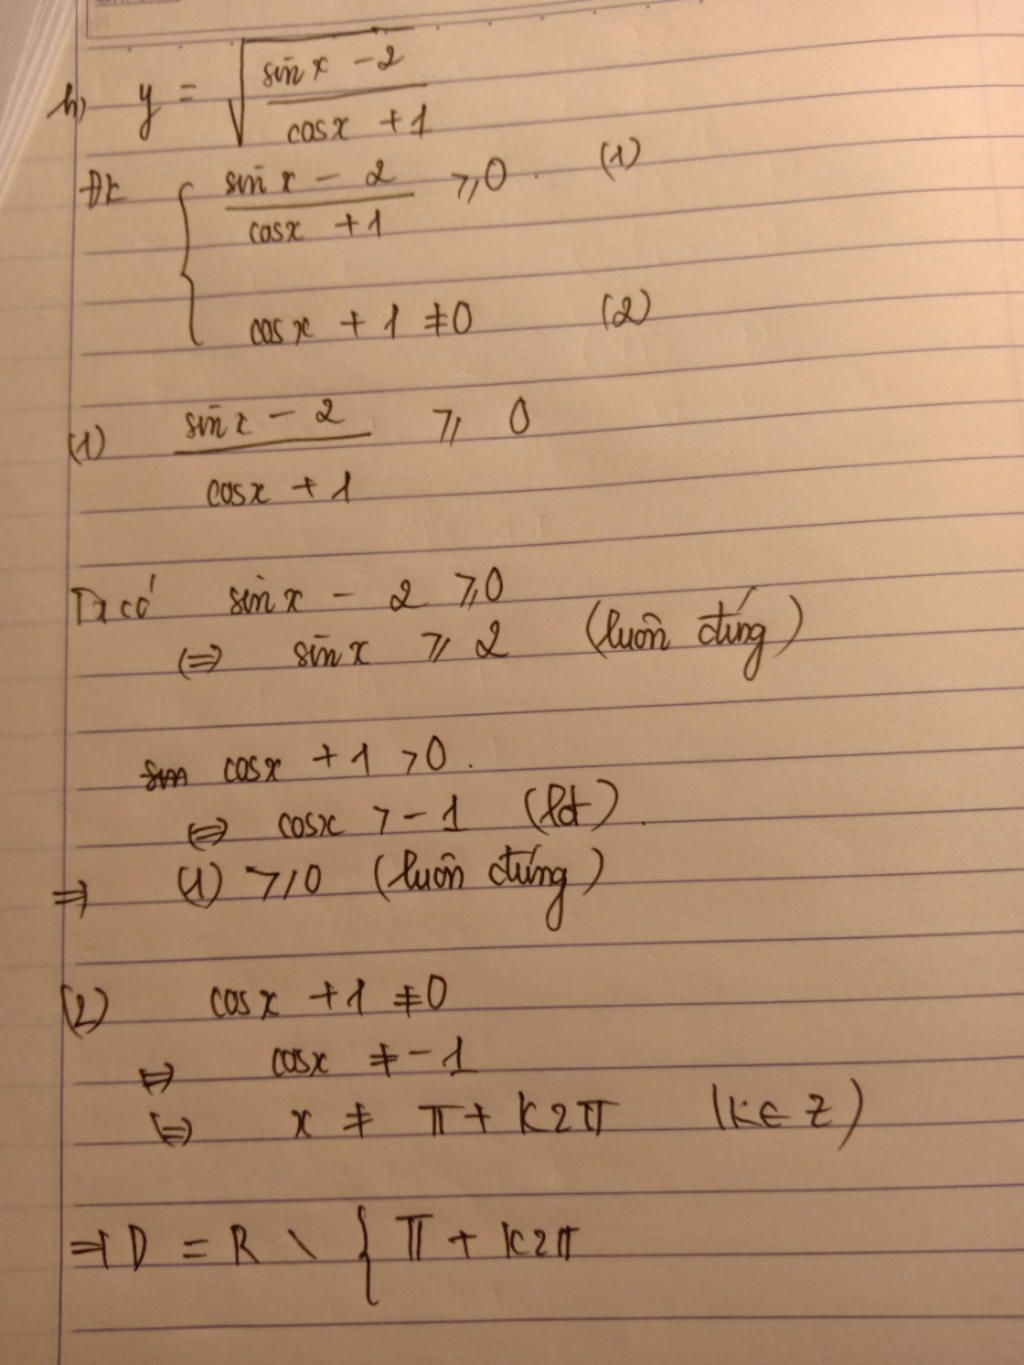 h) y = √((sin x - 2)/(cosx + 1))
ĐK { (sin x - 2)/(cosx + 1) ⩾ 0. (1)
cosx + 1 ≠ 0 (2)
(1) (sin x - 2)/(cosx + 1) ⩾ 0
Ta có sin x - 2 ⩾ 0
⇔ sin x ⩾ 2 (luôn đúng)
cosx + 1 > 0.
⇔ cosx > -1 (lđ).
⇒ (1) ⩾ 0 (luôn đúng)
(2) cosx + 1 ≠ 0
⇔ cosx ≠ -1
⇔ x ≠ π + k2π (k ∈ Z)
⇒ D = R \ { π + k2π